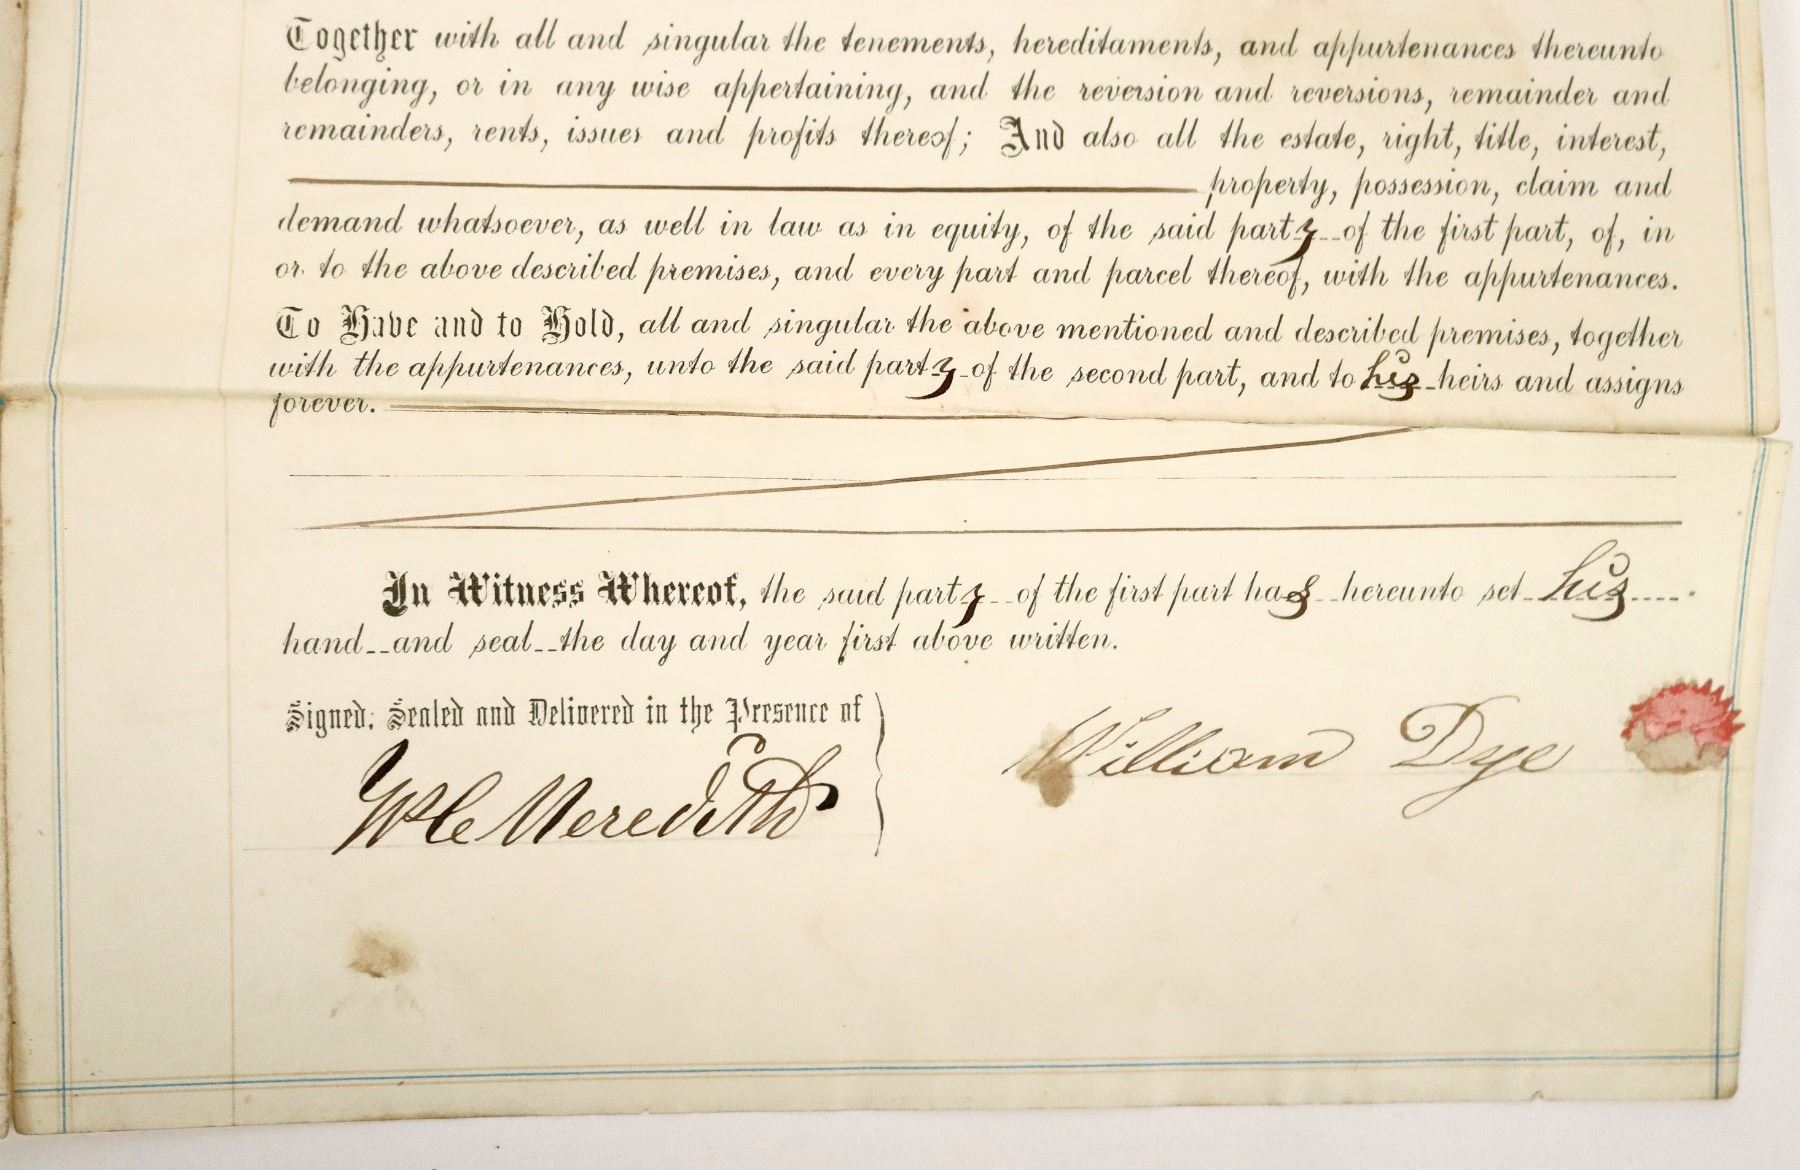 Together with all and singular the tenements, hereditaments, and appurtenances thereunto
belonging, or in any wise appertaining, and the reversion and reversions, remainder and
remainders, rents, issues and profits thereof; And also all the estate, right, title, interest,
property, possession, claim and
demand whatsoever, as well in law as in equity, of the said party of the first part, of, in
or to the above described premises, and every part and parcel thereof, with the appurtenances.
To Have and to Hold, all and singular the above mentioned and described premises, together
with the appurtenances, unto the said party of the second part, and to his heirs and assigns
forever.
In Witness Whereof, the said party of the first part has hereunto set his
hand and seal the day and year first above written.
Signed, Sealed and Delivered in the Presence of
Meredith
William Dye